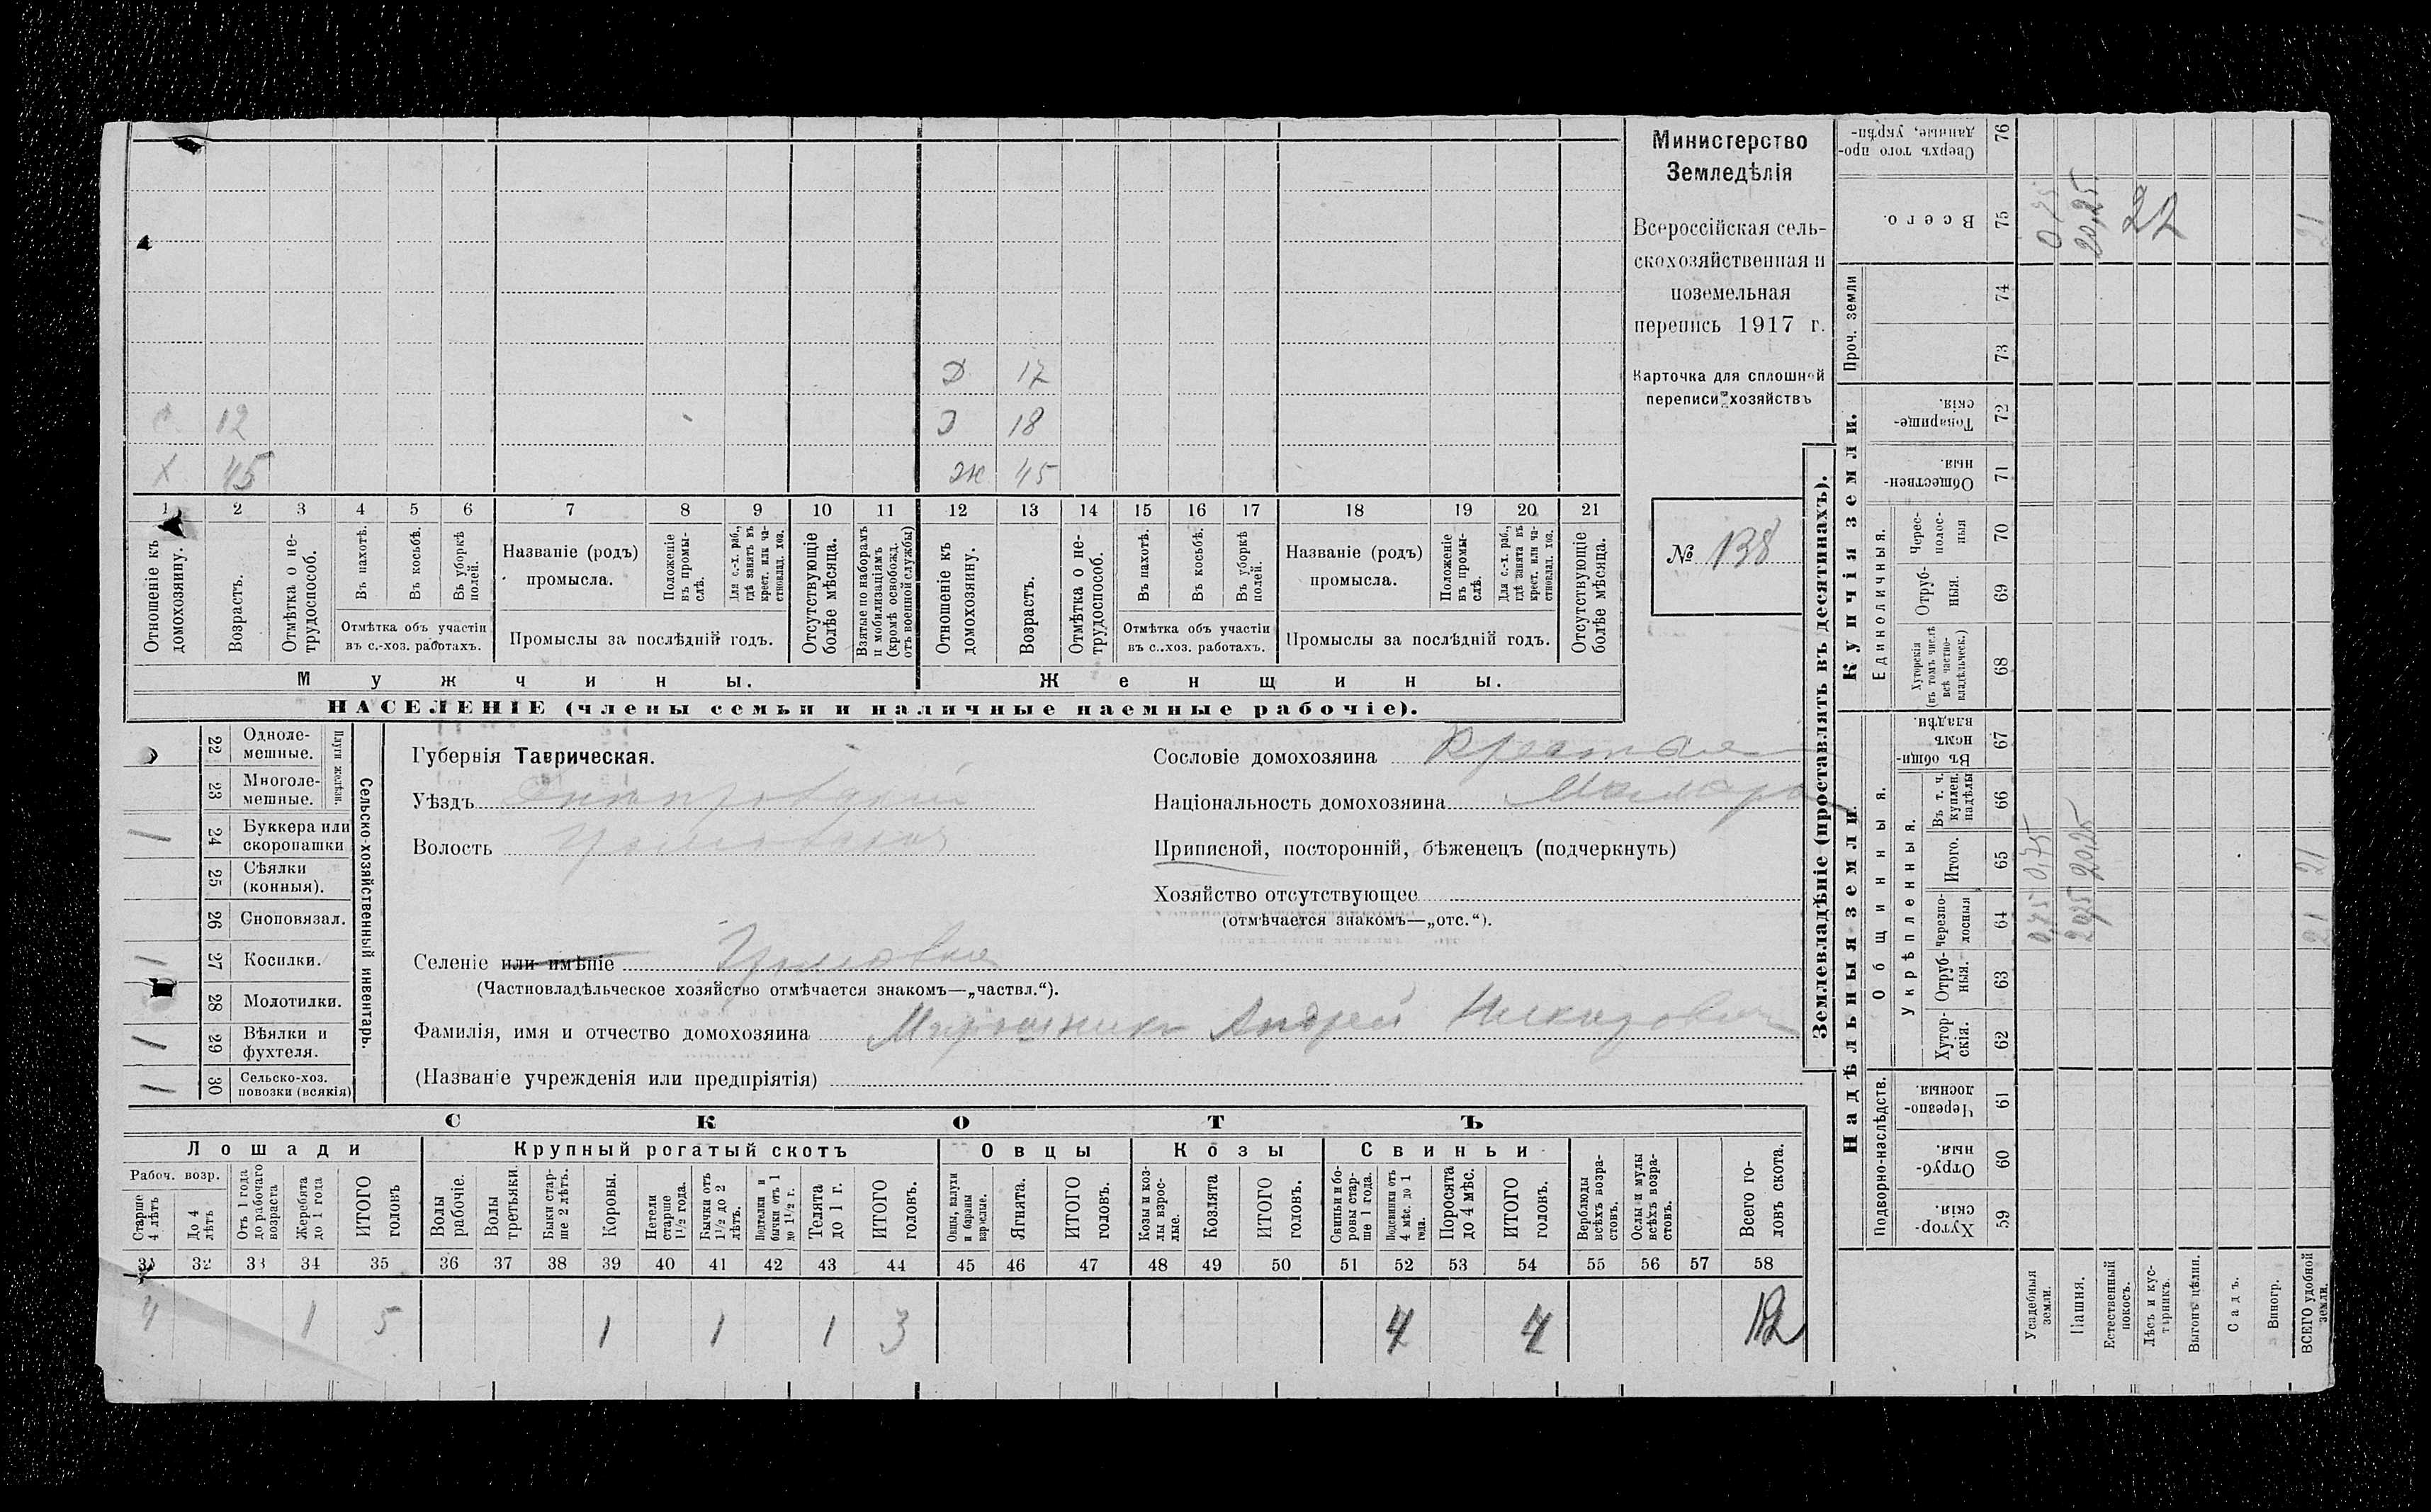 Министерство
Земледѣлія
Всероссійская сель-
скохозяйственная и
поземельная
перепись 1917 г.
Карточка для сплошной
переписи хозяйствъ
№ 138
Д 17
12 18
Х 45 Ж 45
1 2 3 4 5 6 7 8 9 10 11 12 13 14 15 16 17 18 19 20 21
Отношеніе къ домохозяину.
Возрастъ.
Отмѣтка о не-трудоспособ.
Въ пахотѣ.
Въ косьбѣ.
Въ уборкѣ полей.
Отмѣтка объ участіи
въ с.-хоз. работахъ.
Названіе (родъ)
промысла.
Положеніе въ промы-слѣ.
Для с.-х. раб., гдѣ занятъ въ крест. или ча-стновлад. хоз.
Промыслы за послѣдній годъ.
Отсутствующіе болѣе мѣсяца.
Взятые по наборамъ и мобилизаціямъ (кромѣ освобожд. отъ военной службы)
Отношеніе къ домохозяину.
Возрастъ.
Отмѣтка о не-трудоспособ.
Въ пахотѣ.
Въ косьбѣ.
Въ уборкѣ полей.
Отмѣтка объ участіи
въ с.-хоз. работахъ.
Названіе (родъ)
промысла.
Положеніе въ промы-слѣ.
Для с.-х. раб., гдѣ занята въ крест. или ча-стновлад. хоз.
Промыслы за послѣдній годъ.
Отсутствующіе болѣе мѣсяца.
Мужчины. Женщины.
НАСЕЛЕНІЕ (члены семьи и наличные наемные рабочіе).
Сельско-хозяйственный инвентарь.
Плуги желѣзн.
22 Одноле-мешные.
23 Многоле-мешные.
1 24 Буккера или скоропашки
25 Сѣялки (конныя).
26 Сноповязал.
1 27 Косилки.
28 Молотилки.
1 29 Вѣялки и фухтеля.
1 30 Сельско-хоз. повозки (всякія)
Губернія Таврическая.
Уѣздъ Днѣпровскій
Волость
Селеніе или имѣніе
(Частновладѣльческое хозяйство отмѣчается знакомъ—„частвл.“).
Фамилія, имя и отчество домохозяина Мирошник Андрей
(Названіе учрежденія или предпріятія)
Сословіе домохозяина
Національность домохозяина
Приписной, посторонній, бѣженецъ (подчеркнуть)
Хозяйство отсутствующее
(отмѣчается знакомъ—„отс.“).
СКОТЪ
Лошади Крупный рогатый скотъ Овцы Козы Свиньи
Рабоч. возр.
Старше 4 лѣтъ
До 4 лѣтъ
Отъ 1 года до рабочаго возраста
Жеребята до 1 года
ИТОГО головъ
Волы рабочіе.
Волы третьяки.
Быки стар-ше 2 лѣтъ.
Коровы.
Нетели старше 1½ года.
Бычки отъ 1½ до 2 лѣтъ.
Подтелки и бычки отъ 1 до 1½ г.
Телята до 1 г.
ИТОГО головъ.
Овцы, валухи и бараны взрослые.
Ягнята.
ИТОГО головъ.
Козы и коз-лы взрос-лые.
Козлята
ИТОГО головъ.
Свиньи и бо-ровы стар-ше 1 года.
Подсвинки отъ 4 мѣс. до 1 года.
Поросята до 4 мѣс.
ИТОГО головъ.
Верблюды всѣхъ возра-стовъ.
Ослы и мулы всѣхъ возра-стовъ.
Всего го-ловъ скота.
31 32 33 34 35 36 37 38 39 40 41 42 43 44 45 46 47 48 49 50 51 52 53 54 55 56 57 58
4 1 5 1 1 1 3 4 4 12
Землевладѣніе (проставлять въ десятинахъ).
Надѣльныя земли. Купчія земли. Проч. земли
Подворно-наслѣдств.
Общинныя.
Укрѣпленныя.
Единоличныя.
Хутор-скія. 59
Отруб-ныя. 60
Черезпо-лосныя 61
Хутор-скія. 62
Отруб-ныя. 63
черезпо-лосныя 64
Итого. 65
Въ т. ч. куплен. надѣлы 66
Въ общин-номъ владѣн. 67
Хуторскія (въ томъ числѣ всѣ частно-владѣльческ.) 68
Отруб-ныя. 69
Черес-полос-ныя 70
Обществен-ныя. 71
Товарище-скія. 72
73
74
Всего. 75
Сверхъ того про-данные, укрѣп- 76
Усадебныя земли. 0,75 0,75 0,75
Пашня. 20,25 20,25 20,25
Естественный покосъ.
Лѣсъ и кус-тарникъ.
Выгонъ цѣлин.
Садъ.
Виногр.
ВСЕГО удобной земли. 21 21 21